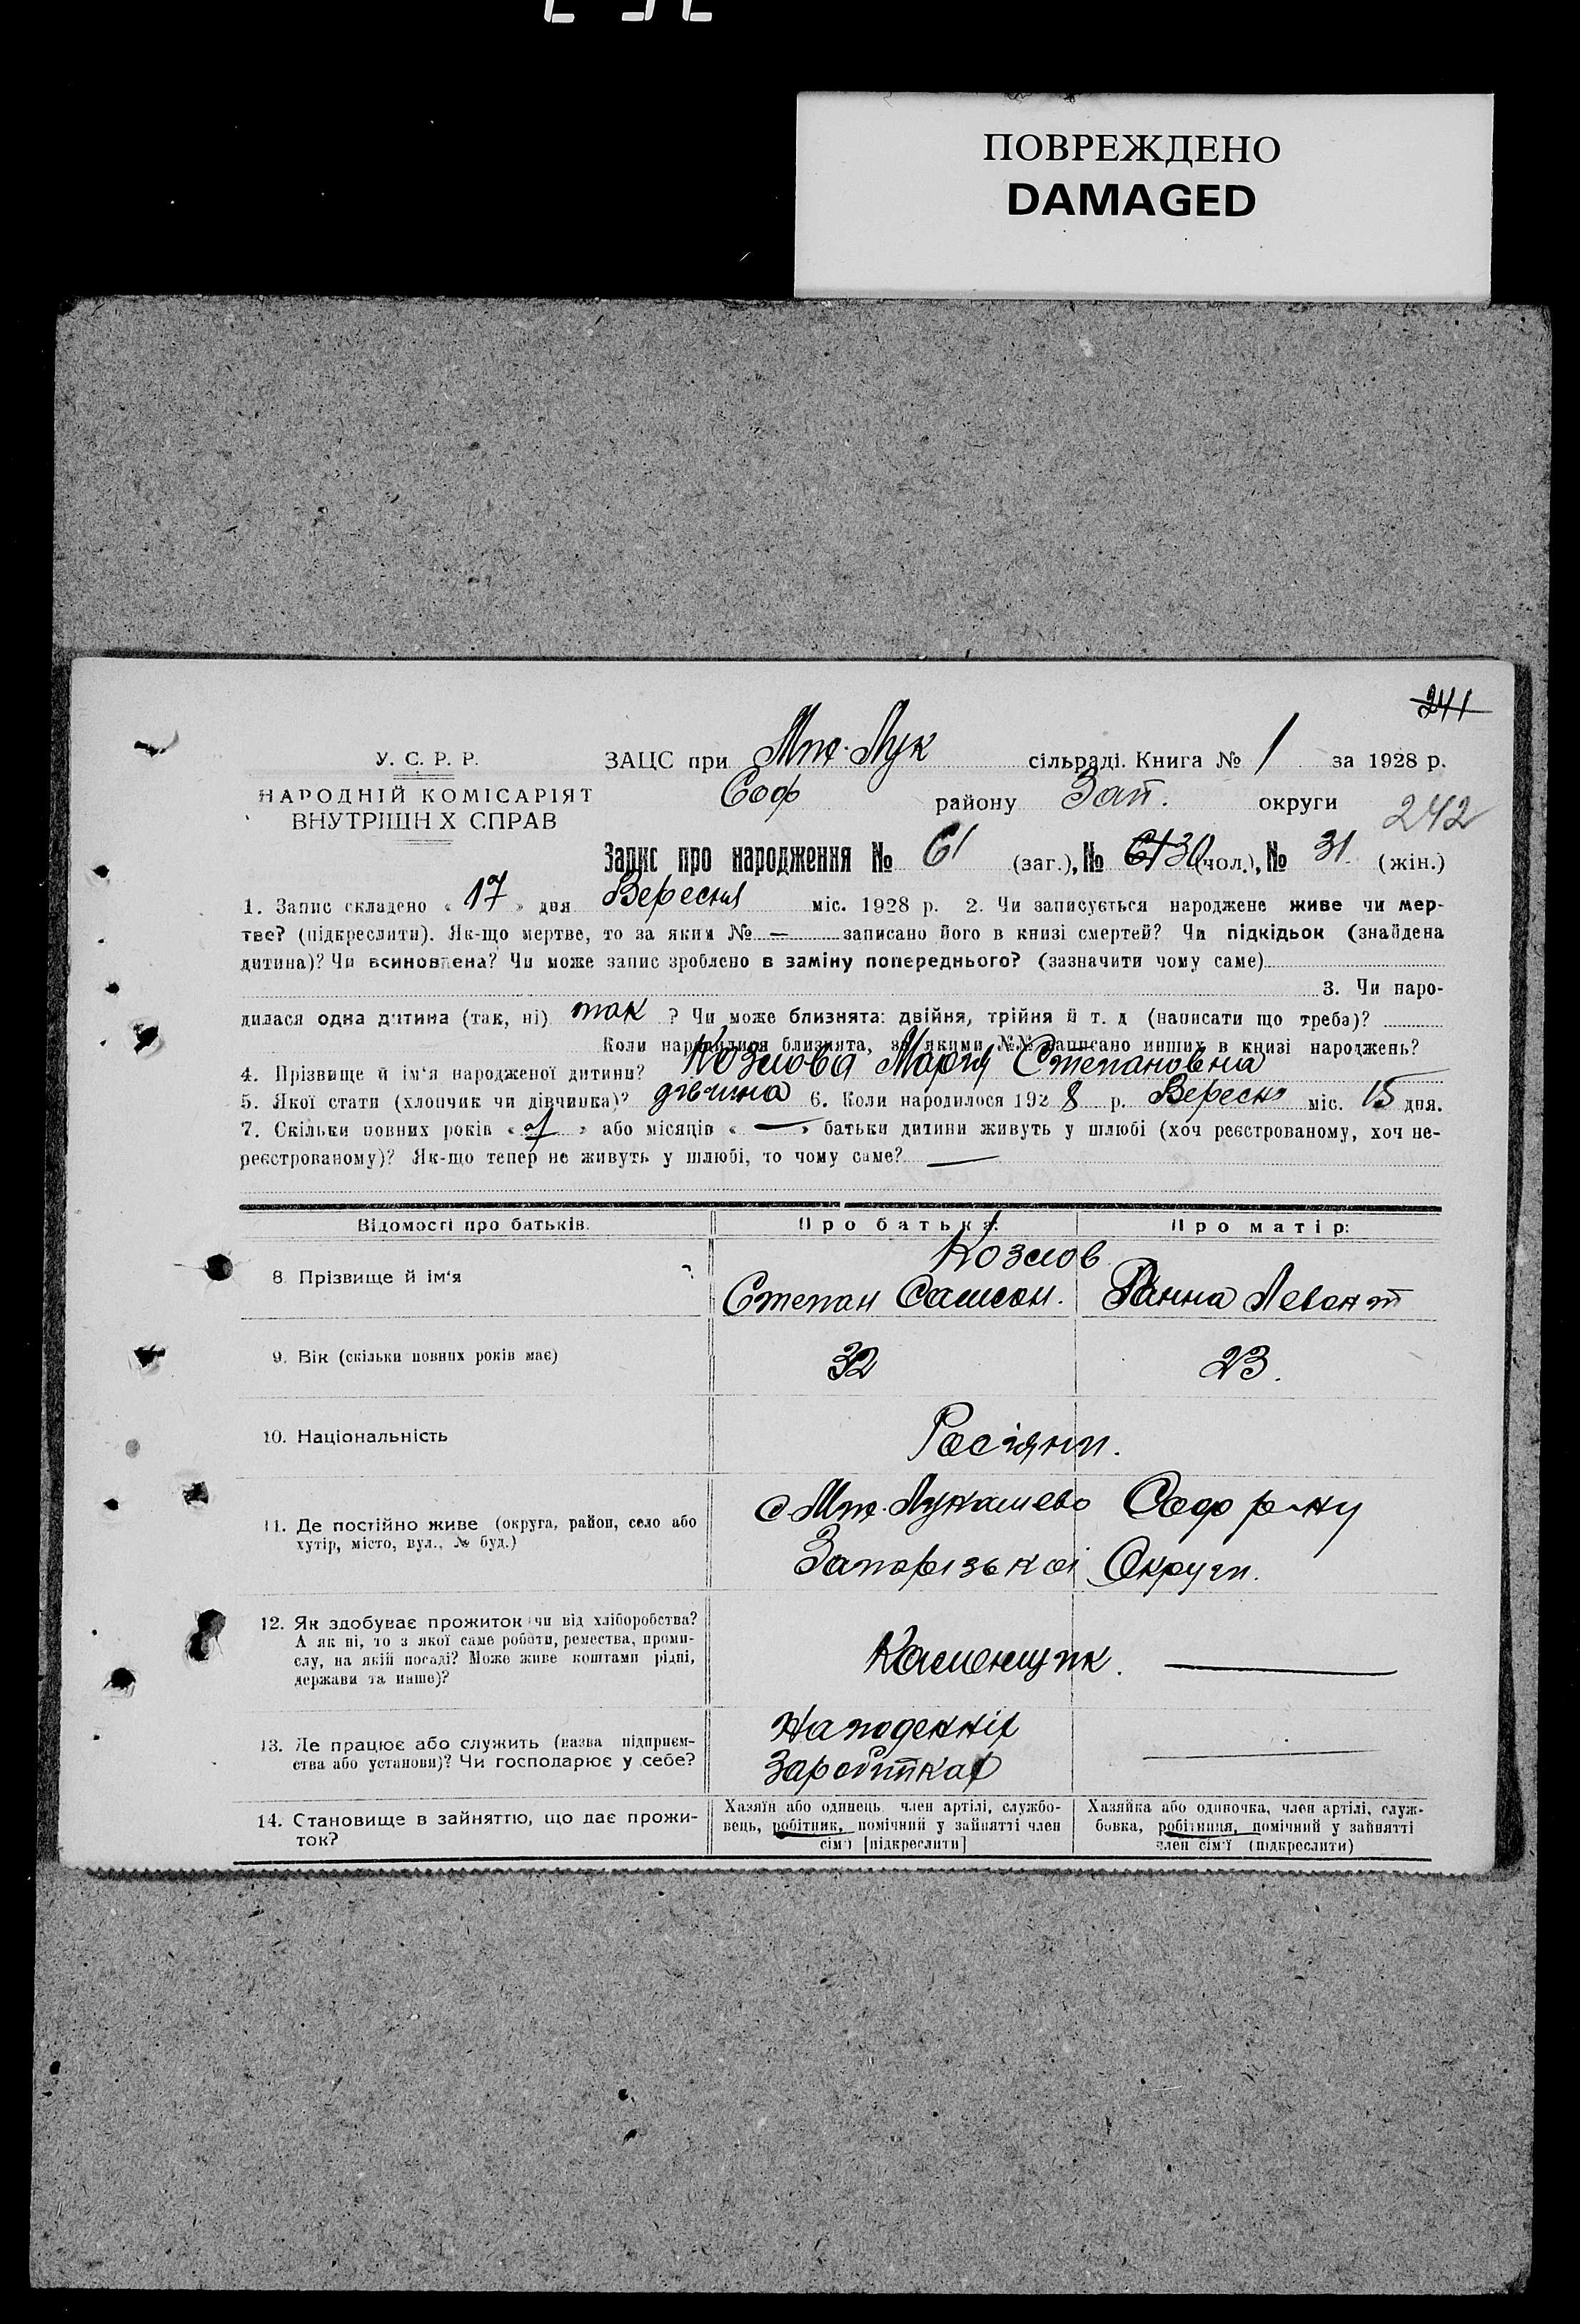 ПОВРЕЖДЕНО
DAMAGED
241
У. С. Р. Р.
НАРОДНІЙ КОМІСАРІЯТ
ВНУТРІШН Х СПРАВ
ЗАЦС при Мих-Лук сільраді. Книга № 1 за 1928 р.
Соф району Зап. округи
242
Запис про народження № 61 (заг.), № 61 30 (чол.), № 31 (жін.)
1. Запис складено « 17 » дня Вересня міс. 1928 р. 2. Чи записується народжене живе чи мер-
тве? (підкреслити). Як-що мертве, то за яким № — записано його в книзі смертей? Чи підкідьок (знайдена
дитина)? Чи всиновлена? Чи може запис зроблено в заміну попереднього? (зазначити чому саме)
3. Чи наро-
дилася одна дитина (так, ні) так ? Чи може близнята: двійня, трійня й т. д (написати що треба)?
Коли народилися близнята, за якими №№ записано инших в книзі народжень?
4. Прізвище й ім'я народженої дитини? Козлова Марія Степановна
5. Якої статі (хлопчик чи дівчинка)? дівчина 6. Коли народилося 1928 р. Вересня міс. 15 дня.
7. Скільки повних років « » або місяців « — » батьки дитини живуть у шлюбі (хоч реєстрованому, хоч не-
реєстрованому)? Як-що тепер не живуть у шлюбі, то чому саме? —
Відомості про батьків. Про батька: Про матір:
8. Прізвище й ім'я
Козлов
Степан Самсон. Ганна Леонт
9. Вік (скільки повних років має) 32 23.
10. Національність Росіяни.
11. Де постійно живе (округа, район, село або
хутір, місто, вул., № буд.)
с Мих-Лукашево Соф р-ну
Запорізької Округи.
12. Як здобуває прожиток чи від хліборобства?
А як ні, то з якої саме роботи, ремества, проми-
слу, на якій посаді? Може живе коштами рідні,
держави та инше)?
Каменщик. —
13. Де працює або служить (назва підприєм-
ства або установи)? Чи господарює у себе?
На поденніх
Заробітках —
14. Становище в зайняттю, що дає прожи-
ток?
Хазяїн або одинець, член артілі, службо-
вець, робітник, помічний у зайнятті член
сім'ї [підкреслити]
Хазяйка або одиночка, член артілі, служ-
бовка, робітниця, помічний у зайнятті
член сім'ї (підкреслити)